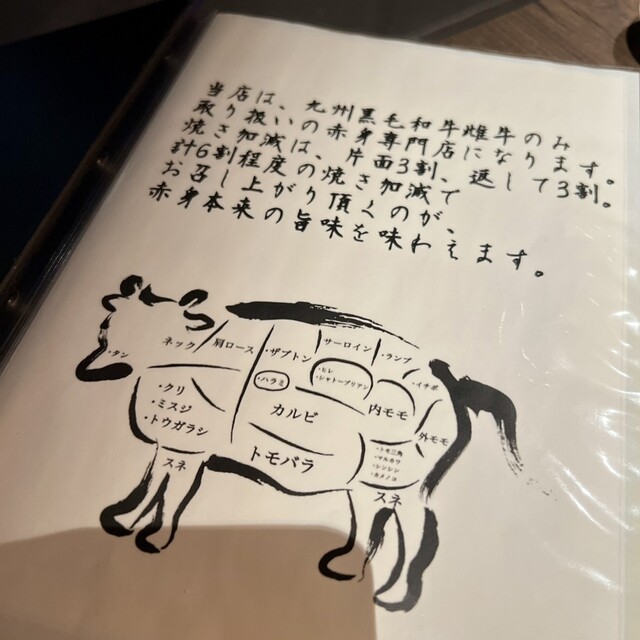 当店は、九州黒毛和牛雌牛のみ
取り扱いの赤身専門店になります。
焼き加減は、片面3割、返して3割。
計6割程度の焼き加減で
お召し上がり頂くのが、
赤身本来の旨味を味わえます。
・タン
ネック
肩ロース
・ザブトン
サーロイン
・ランプ
・ヒレ
・シャトーブリアン
・イチボ
・ハラミ
・クリ
・ミスジ
・トウガラシ
カルビ
内モモ
外モモ
・トモ三角
・マルカワ
・シンシン
・カメノコ
トモバラ
スネ
スネ